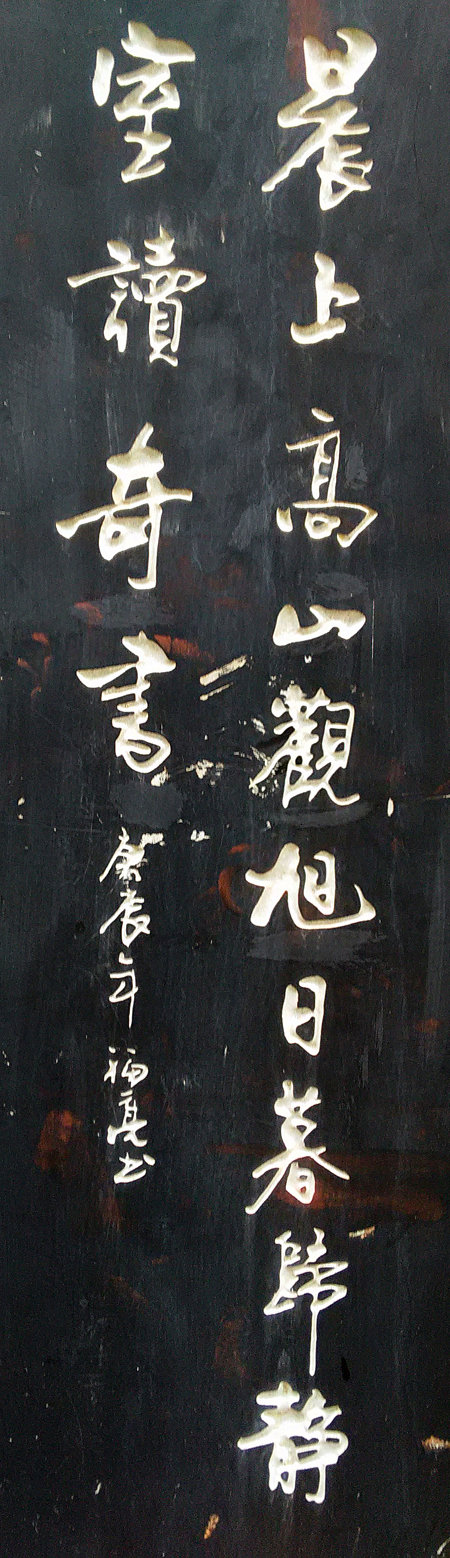 晨上高山觀旭日暮歸靜
室讀奇書
庚辰年 福亮书